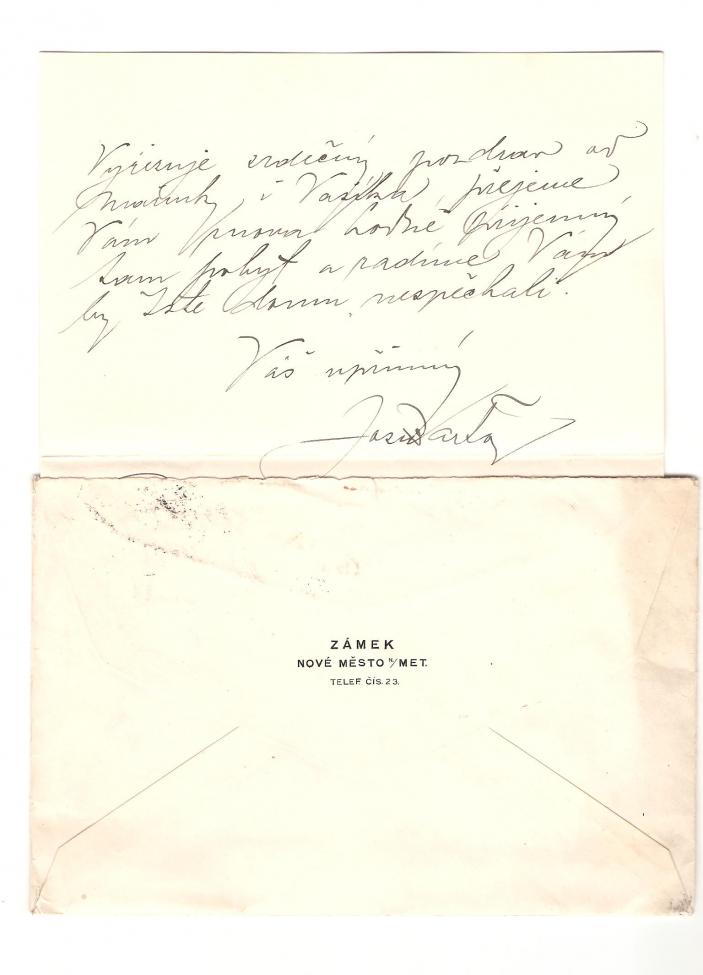 Vyřizuje srdečný pozdrav od
maminky i Vašíka přejeme
Vám znova hodně příjemný
tam pobyt a radíme Vám
by jste domu nespěchali.
Váš upřímný
Josef Bartoň
ZÁMEK
NOVÉ MĚSTO N/MET.
TELEF. ČÍS. 23.